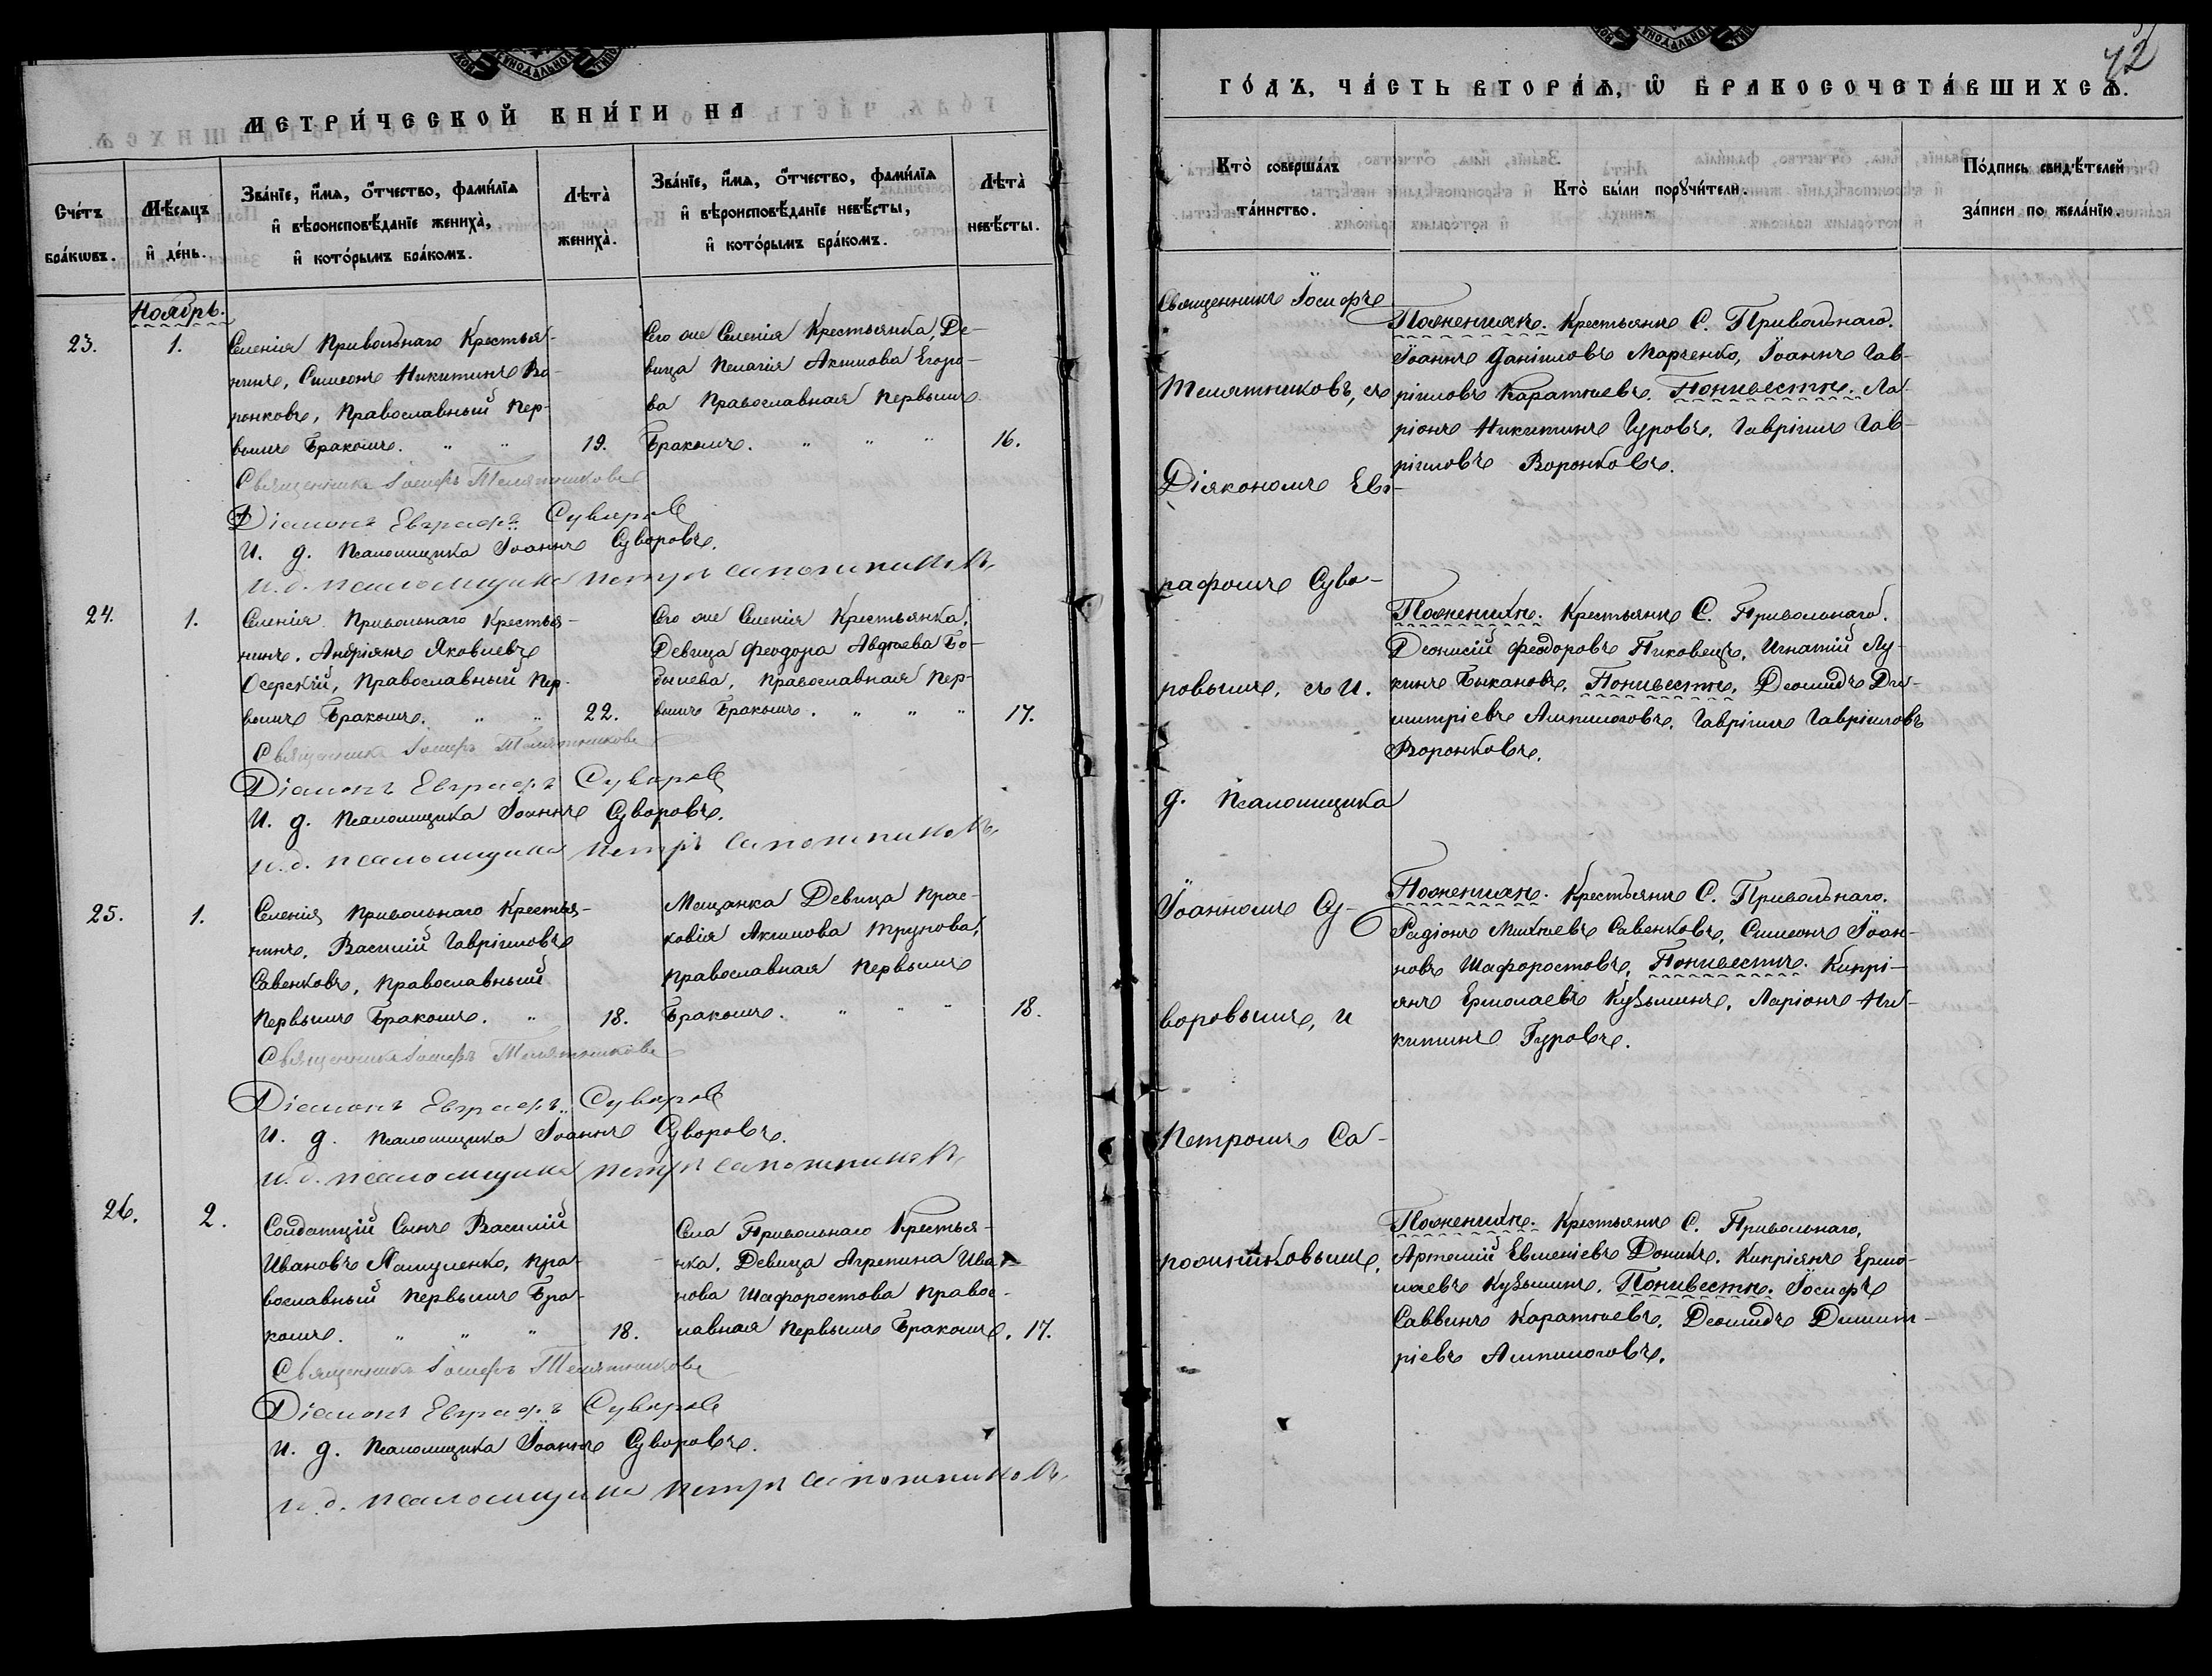 МЕТРИ́ЧЕСКОЙ КНИ́ГИ НА
Сче́тъ бра́кѡвъ.
Мѣ́сяцъ и҆ де́нь.
Зва́нїе, и҆́мѧ, ѻ҆́тчество, фами́лїѧ
и҆ вѣроисповѣ́данїе жениха̀,
и҆ кото́рымъ бра́комъ.
Лѣта̀ жениха̀.
Зва́нїе, и҆́мѧ, ѻ҆́тчество, фами́лїѧ
и҆ вѣроисповѣ́данїе невѣ́сты,
и҆ кото́рымъ бра́комъ.
Лѣта̀ невѣ́сты.
Ноябрь.
23. 1.
Селенія Привольнаго Крестья-
нинъ, Симеонъ Никитинъ Во-
ронковъ, Православный Пер-
вымъ Бракомъ. " " 19.
Его же Селенія Крестьянка, Де-
вица Пелагія Акимова Егоро-
ва Православная Первымъ
Бракомъ. " " " 16.
Священникъ Іосифъ Телятниковъ
Діаконъ Евграфъ Суворов
И. д. Псаломщика Іоаннъ Суворовъ.
И.д. псаломщика Петръ Сапожниковъ
24. 1.
Селенія Привольнаго Крестья-
нинъ, Андріянъ Яковлевъ
Осерскій, Православный Пер-
вымъ Бракомъ. " " 22.
Его же Селенія Крестьянка,
Девица Феодора Авдѣева Бо-
дылева, Православная Пер-
вымъ Бракомъ. " " " 17.
Священникъ Іосифъ Телятниковъ
Діаконъ Евграфъ Суворов
И. д. Псаломщика Іоаннъ Суворовъ.
И.д. псаломщика Петръ Сапожниковъ
25. 1.
Селенія Привольнаго Крестья-
нинъ, Василій Гавріиловъ
Савенковъ, Православный
Первымъ Бракомъ. " 18.
Мещанка Девица Прас-
ковія Акимова Трунова,
Православная Первымъ
Бракомъ. " " " 18.
Священникъ Іосифъ Телятниковъ
Діаконъ Евграфъ Суворов
И. д. Псаломщика Іоаннъ Суворовъ.
И.д. псаломщика Петръ Сапожниковъ
26. 2.
Солдатцій Сынъ Василій
Ивановъ Пра-
вославный Первымъ Бра-
комъ. " " " 18.
Села Привольнаго Крестья-
нка, Девица Агрепина Ива-
нова Шафоростова Правос-
лавная Первымъ Бракомъ. 17.
Священникъ Іосифъ Телятниковъ
Діаконъ Евграфъ Суворов
И. д. Псаломщика Іоаннъ Суворовъ.
И.д. псаломщика Петръ Сапожниковъ
42
ГО́ДЪ, ЧА́СТЬ ВТОРА́Ѧ, Ѽ БРАКОСОЧЕТА́ВШИХСѦ.
Кто̀ соверша́лъ
та́инство.
Кто̀ бы́ли порꙋчи́тели.
По́дпись свидѣ́телей
за́писи по жела́нїю.
Священникъ Іосифъ
Телятниковъ, съ
Діякономъ Евг-
рафомъ Суво-
ровымъ, съ И.
д. Псаломщика
Іоанномъ Су-
воровымъ, и
Петромъ Са-
пожниковымъ.
По женихѣ. Крестьяне С. Привольнаго.
Іоаннъ Даніиловъ Марченко, Іоаннъ Гав-
ріиловъ Каратѣевъ. По невестѣ. Ла-
ріонъ Никитинъ Гуровъ, Гавріилъ Гав-
ріиловъ Воронковъ.
По женихѣ. Крестьяне С. Привольнаго.
Деонисій Феодоровъ Пиковецъ, Игнатій Лу-
кинъ Быкановъ, По невестѣ. Деомидъ Ди-
митріевъ Алпилоговъ, Гавріилъ Гавріиловъ
Воронковъ.
По женихѣ. Крестьяне С. Привольнаго.
Радіонъ Михѣевъ Савенковъ, Симеонъ Іоан-
новъ Шафоростовъ, По невестѣ. Кипрі-
янъ Ермолаевъ Кузьминъ, Ларіонъ Ни-
китинъ Гуровъ.
По женихѣ. Крестьяне С. Привольнаго,
Артемій Евменіевъ Кипріянъ Ермо-
лаевъ Кузьминъ, По невестѣ. Іосифъ
Саввинъ Каратѣевъ, Деомидъ Димит-
ріевъ Алпилоговъ.